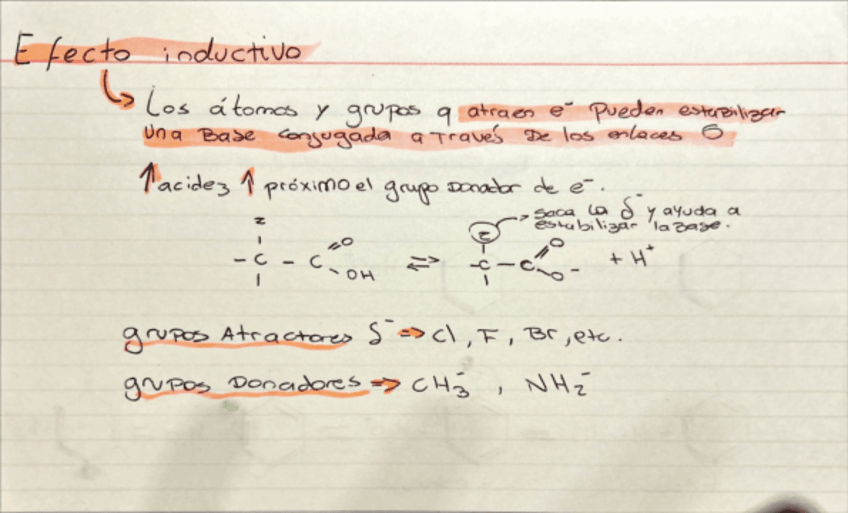 Efecto inductivo
Los átomos y grupos q atraen e⁻ pueden estabilizar
una base conjugada a través de los enlaces σ
↑acidez ↑ próximo el grupo donador de e⁻.
saca la δ⁻ y ayuda a
estabilizar la base.
z
z
- C - C O OH ⇌ - C - C O O⁻ + H⁺
grupos Atractores δ⁻ ⇒ Cl, F, Br, etc.
grupos Donadores ⇒ CH₃⁻, NH₂⁻